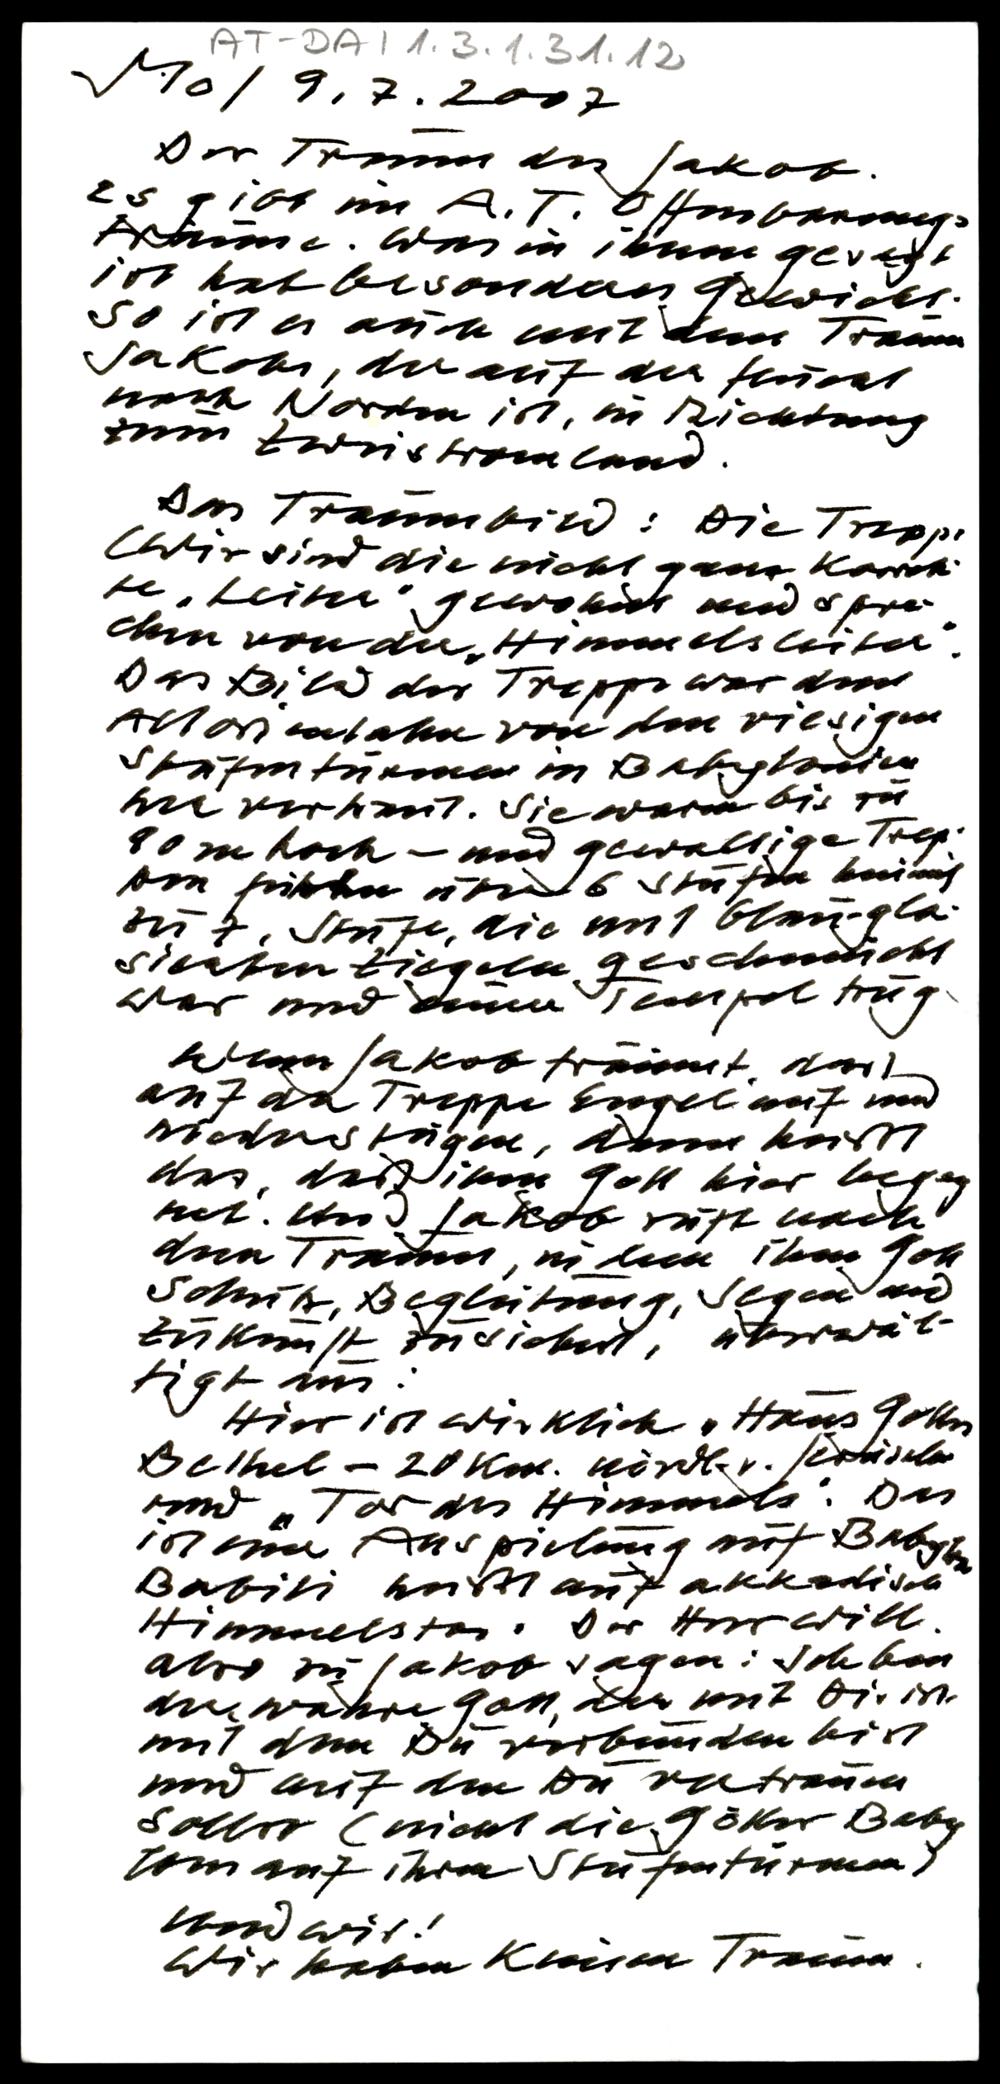 AT-DA | 1.3.1.31.12
Mo / 9.7.2007
Der Traum des Jakob.
Es gibt im A.T. Offenbarungs-
träume. Was in ihnen gesagt
ist hat besonderes Gewicht.
So ist es auch mit dem Traum
Jakobs, der auf der Flucht
nach Norden ist, in Richtung
zum Zweistromland.
Das Traumbild: Die Treppe
(Wir sind die nicht ganz korrek-
te „Leiter" gewohnt und spre-
chen von der „Himmelsleiter".
Das Bild der Treppe war dem
Altorientalen von den riesigen
Stufentürmen in Babylonien
her vertraut. Sie waren bis zu
90 m hoch – und gewaltige Trep-
pen führten über 6 Stufen hinauf
zu 7. Stufe, die mit blau-gla-
sierten Ziegeln geschmückt
war und einen Tempel trug.
Wenn Jakob träumt, dass
auf der Treppe Engel auf und
niederstiegen, dann heisst
das, dass ihm Gott hier begeg
net. Und Jakob ruft nach
dem Traum, in dem ihm Gott
Schutz, Begleitung, Segen und
Zukunft zusichert, überwäl-
tigt aus:
Hier ist wirklich „Haus Gottes
Bethel – 20 Km. nördl. v. Jerusalem
und „Tor des Himmels". Das
ist eine Anspielung auf Babylon
Babili heisst auf akkadisch
Himmelstor. Der Herr will
also zu Jakob sagen: Ich bin
der wahre Gott, der mit Dir ist
mit dem Du verbunden bist
und auf den Du vertrauen
sollst (nicht die Götter Baby
lons auf ihren Stufentürmen)
Und wir!
Wir haben keinen Traum.